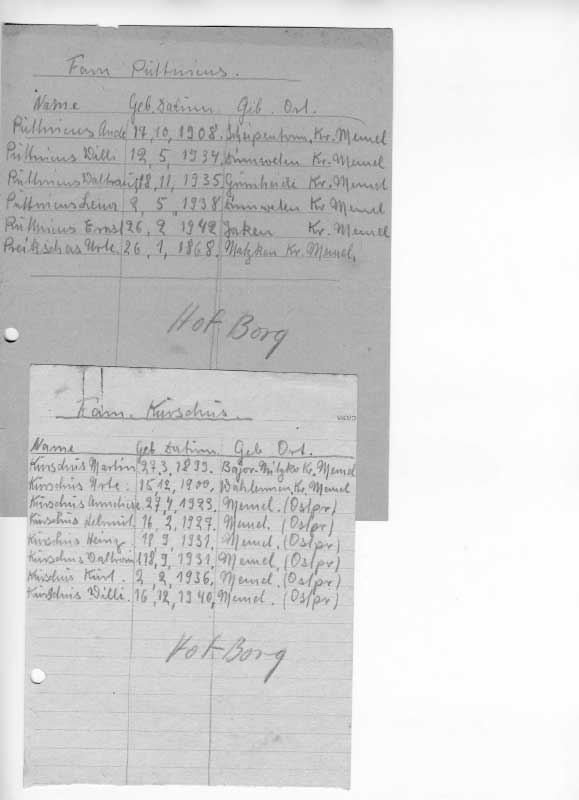 Fam Püttnicus.
Name Geb. Datum. Geb. Ort.
Püttnicus Ande 17, 10, 1908. Kr. Memel
Püttnicus Willi 12, 5, 1934, Kr. Memel
Püttnicus Waltraut 18, 11, 1935, Grünheide Kr. Memel
Püttnicus Lena 2, 5, 1938 Kr Memel
Püttnicus Ernst 26, 2 1942 Jaken Kr. Memel
Preikschas Urte. 26, 1, 1868. Matzken Kr. Memel,
Hof Borg
Fam. Kurschus.
Name Geb Datum. Geb Ort.
Kurschus Martin 27.3, 1899. Bajor-Mitzko Kr. Memel
Kurschus Urte. 15 12, 1900, Kr. Memel
Kurschus 27, 4, 1923, Memel. (Ostpr)
Kurschus Helmut. 16, 2, 1927. Memel. (Ostpr)
Kurschus Heinz 18 9, 1931, Memel, (Ostpr)
Kurschus Waltraut 18, 9, 1931, Memel, (Ostpr)
Kurschus Kurt. 2, 2, 1936, Memel. (Ostpr)
Kurschus Willi. 16, 12, 1940, Memel. (Ostpr)
Hof Borg